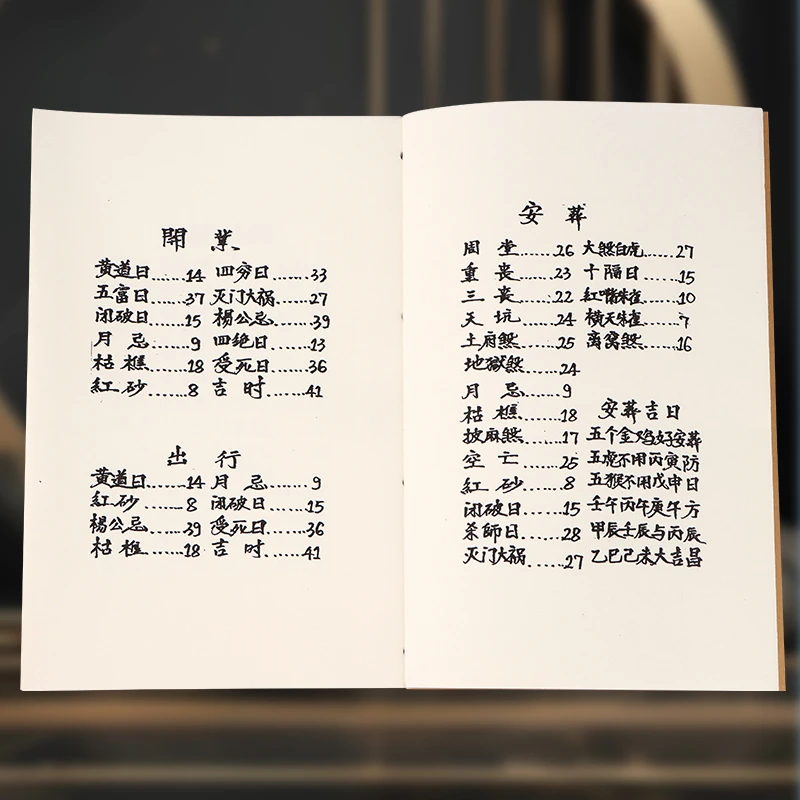 開業
黄道日......14 四穷日......33
五富日......37 灭门大祸......27
闭破日......15 楊公忌......39
月忌......9 四絶日......13
枯樵......18 受死日......36
紅砂......8 吉时......41
出行
黄道日......14 月忌......9
紅砂......8 闭破日......15
楊公忌......39 受死日......36
枯樵......18 吉时......41
安葬
周堂......26 大煞白虎......27
重丧......23 十隔日......15
三丧......22 紅嘴朱雀......10
天坑......24 横天朱雀......7
土府煞......25 离窝煞......16
地獄煞......24
月忌......9
枯樵......18
披麻煞......17
空亡......25
紅砂......8
闭破日......15
杀師日......28
灭门大祸......27
安葬吉日
五个金鸡好安葬
五虎不用丙寅防
五猴不用戊申日
壬午丙午庚午方
甲辰壬辰与丙辰
乙巳己未大吉昌